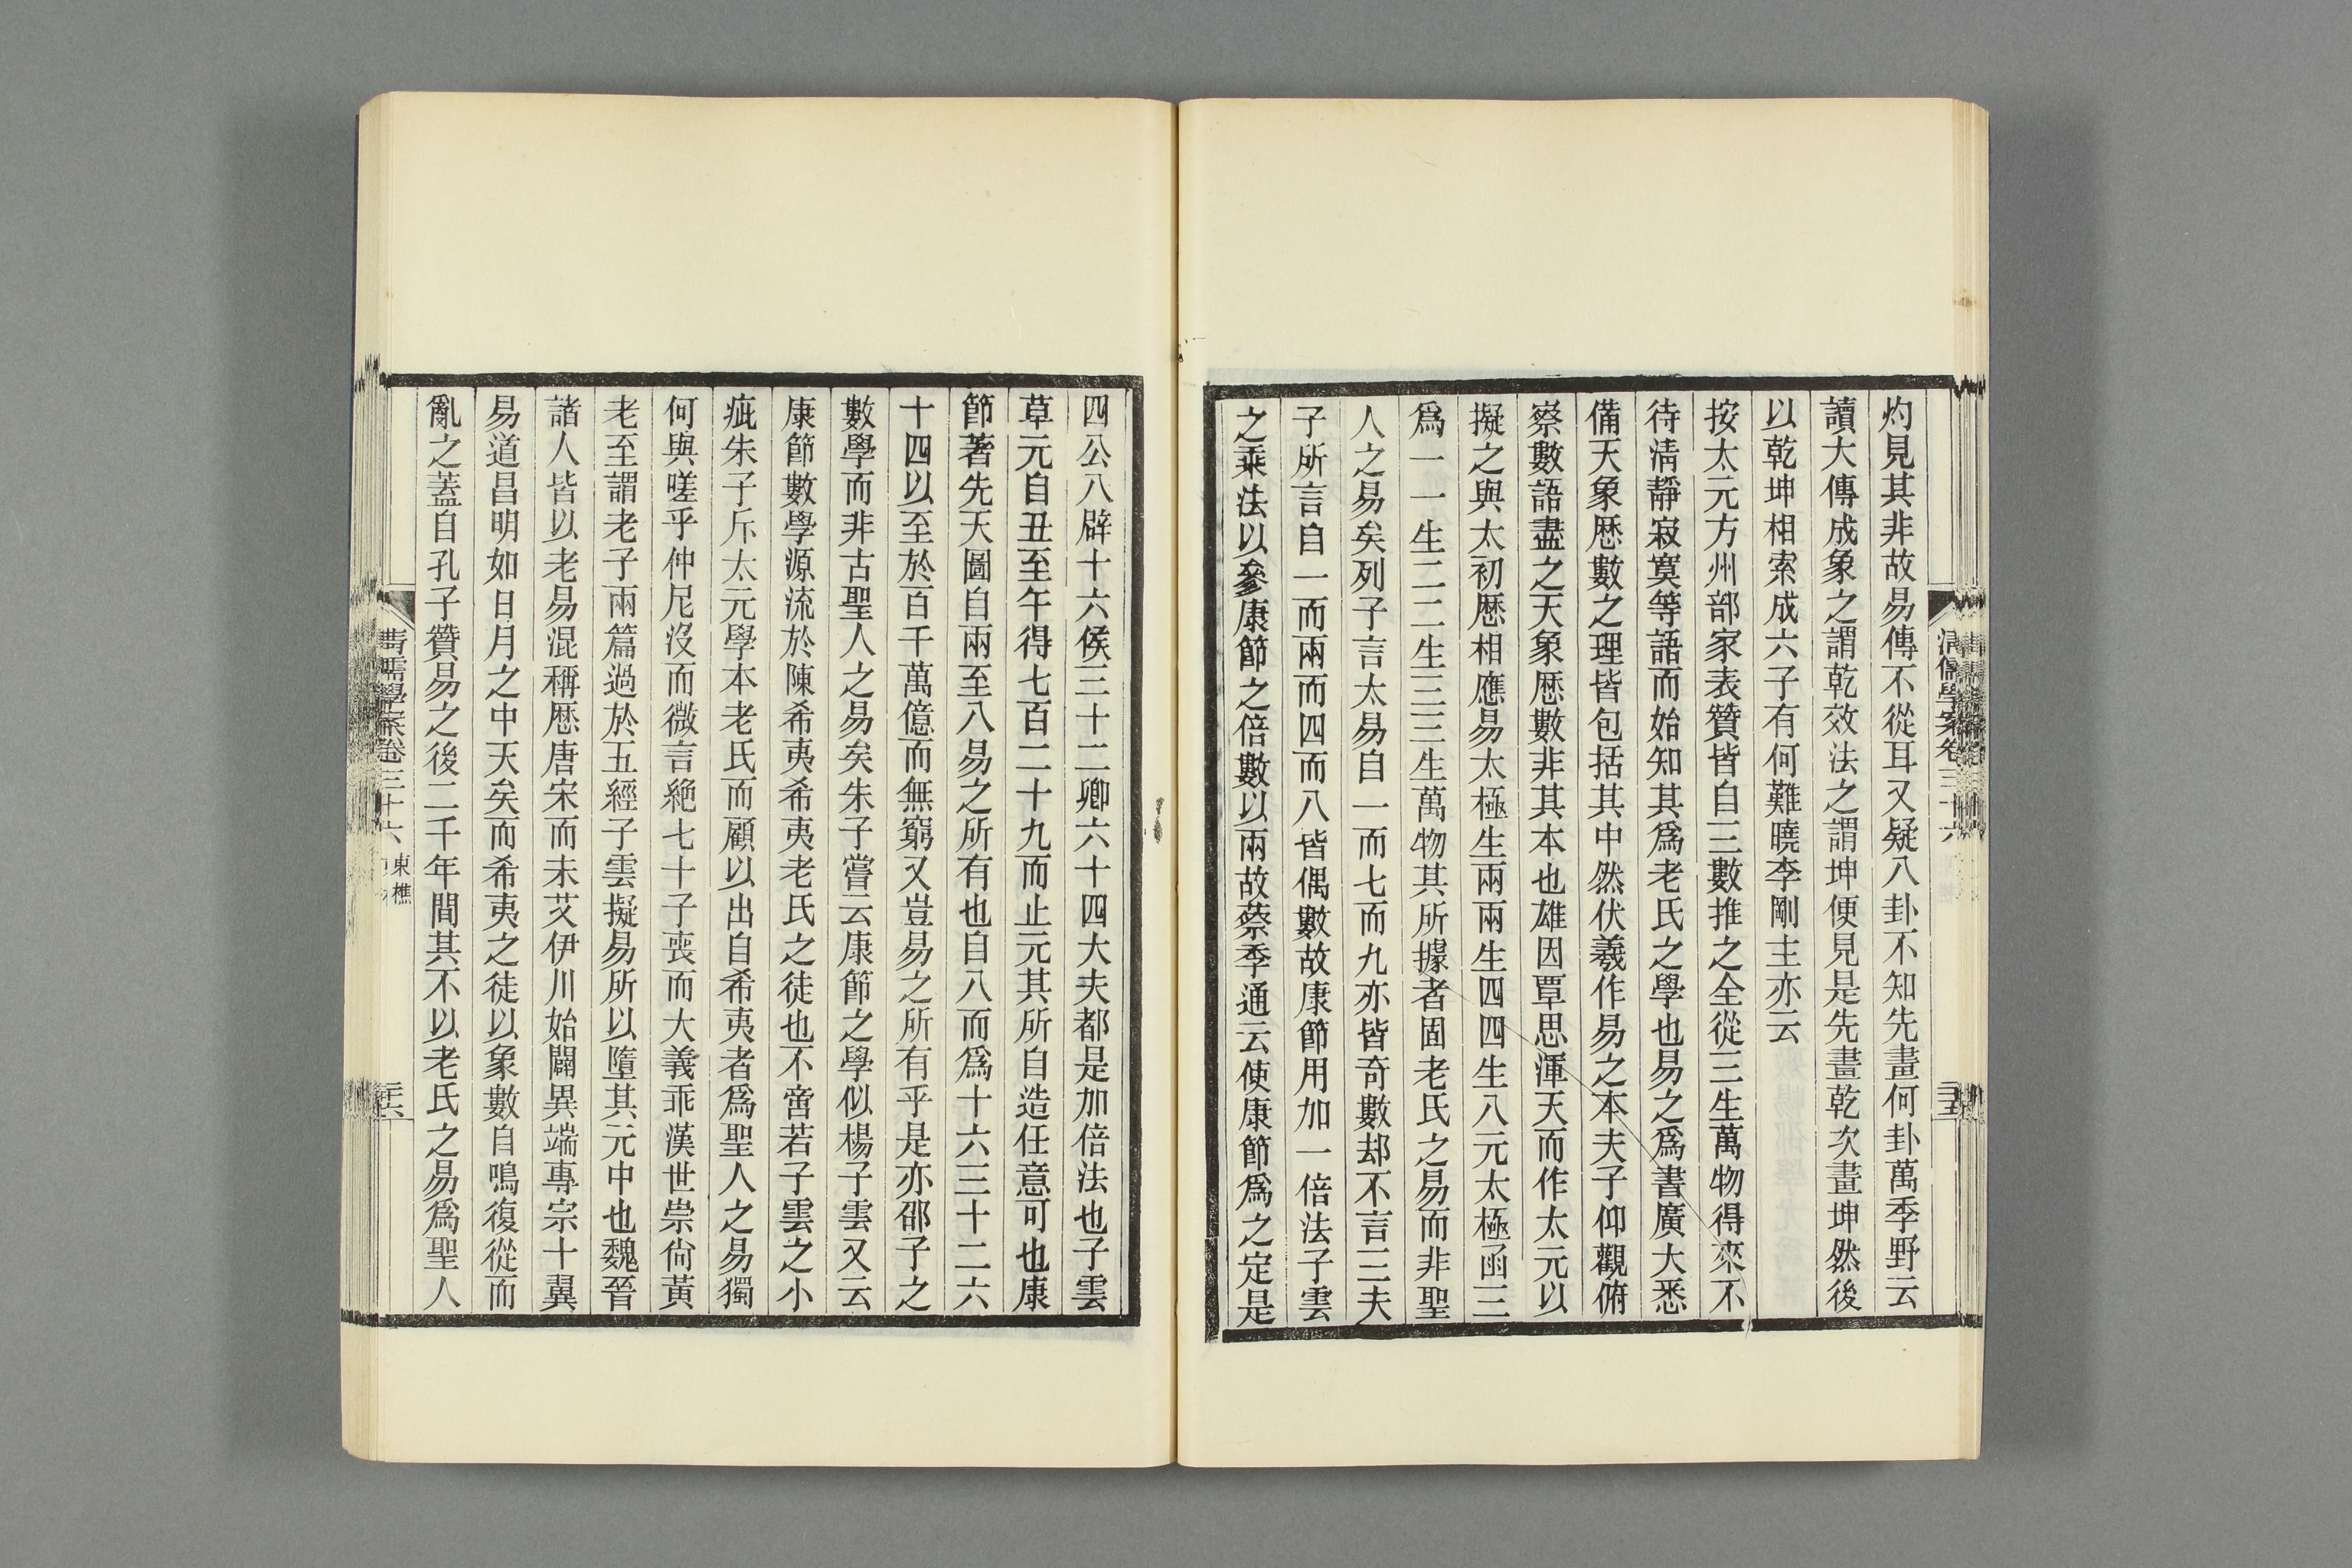 灼見其非故易傳不從耳又疑八卦不知先畫何卦萬季野云
讀大傳成象之謂乾效法之謂坤便見是先畫乾次畫坤然後
以乾坤相索成六子有何難曉李剛主亦云
按太元方州部家表贊皆自三數推之全從三生萬物得來不
待清靜寂寞等語而始知其爲老氏之學也易之爲書廣大悉
備天象歷數之理皆包括其中然伏羲作易之本夫子仰觀俯
察數語盡之天象歷數非其本也雄因覃思渾天而作太元以
擬之與太初歷相應易太極生兩兩生四四生八元太極函三
爲一一生二二生三三生萬物其所據者固老氏之易而非聖
人之易矣列子言太易自一而七而九亦皆奇數却不言三夫
子所言自一而兩而四而八皆偶數故康節用加一倍法子雲
之乘法以參康節之倍數以兩故蔡季通云使康節爲之定是
清儒學案卷三十六
三五
四公八辟十六侯三十二卿六十四大夫都是加倍法也子雲
草元自丑至午得七百二十九而止元其所自造任意可也康
節著先天圖自兩至八易之所有也自八而爲十六三十二六
十四以至於百千萬億而無窮又豈易之所有乎是亦邵子之
數學而非古聖人之易矣朱子嘗云康節之學似楊子雲又云
康節數學源流於陳希夷希夷老氏之徒也不啻若子雲之小
疵朱子斥太元學本老氏而顧以出自希夷者爲聖人之易獨
何與嗟乎仲尼沒而微言絶七十子喪而大義乖漢世崇尙黃
老至謂老子兩篇過於五經子雲擬易所以墮其元中也魏晉
諸人皆以老易混稱歷唐宋而未艾伊川始闢異端專宗十翼
易道昌明如日月之中天矣而希夷之徒以象數自鳴復從而
亂之蓋自孔子贊易之後二千年間其不以老氏之易爲聖人
清儒學案卷三十六
東樵
三六